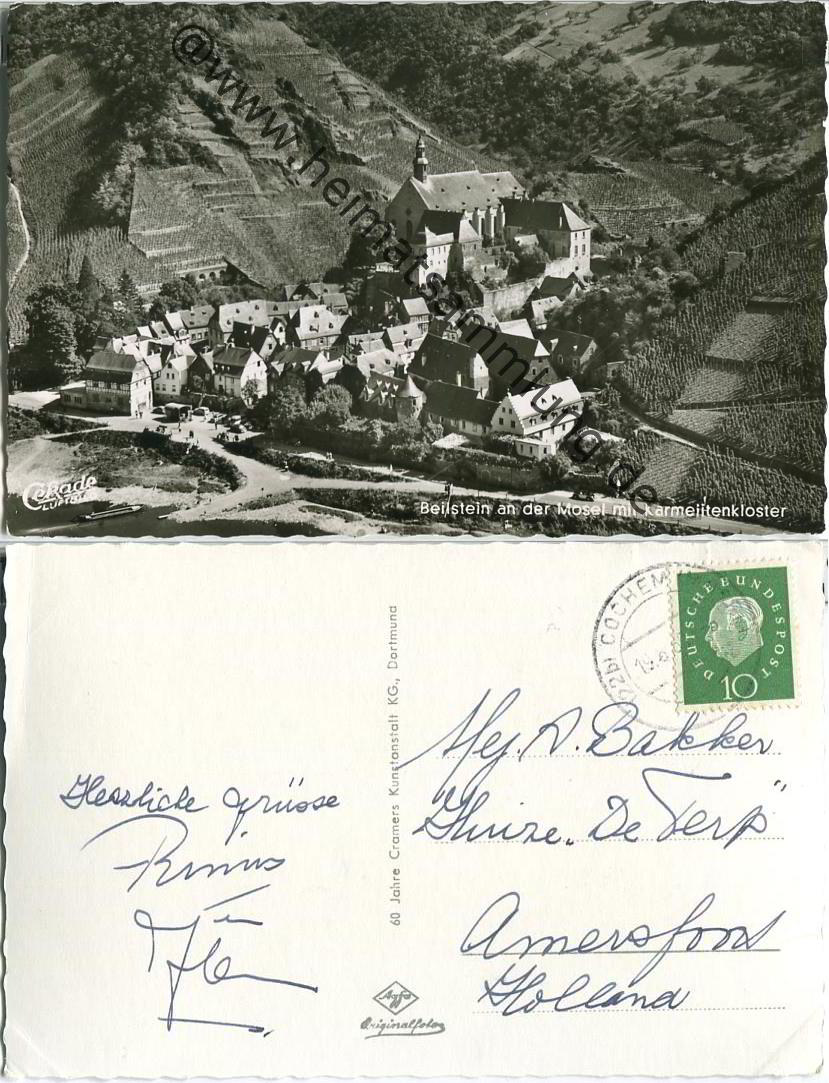 @www.heimatsammlung.de
Cekade
LUFTBILD
Beilstein an der Mosel mit Karmelitenkloster
60 Jahre Cramers Kunstanstalt KG., Dortmund
(22b) COCHEM
19.6
DEUTSCHE BUNDESPOST
10
Herzliche Grüsse
Rinus
Mej. A. Bakker
Huize „De Terp"
Amersfoort
Holland
Agfa
Originalfoto